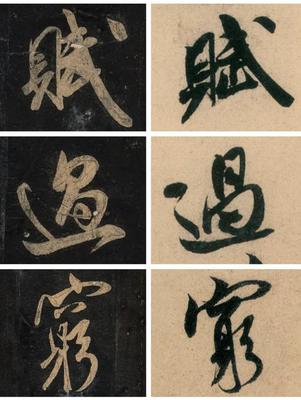 賦 賦
過 過
窮 窮